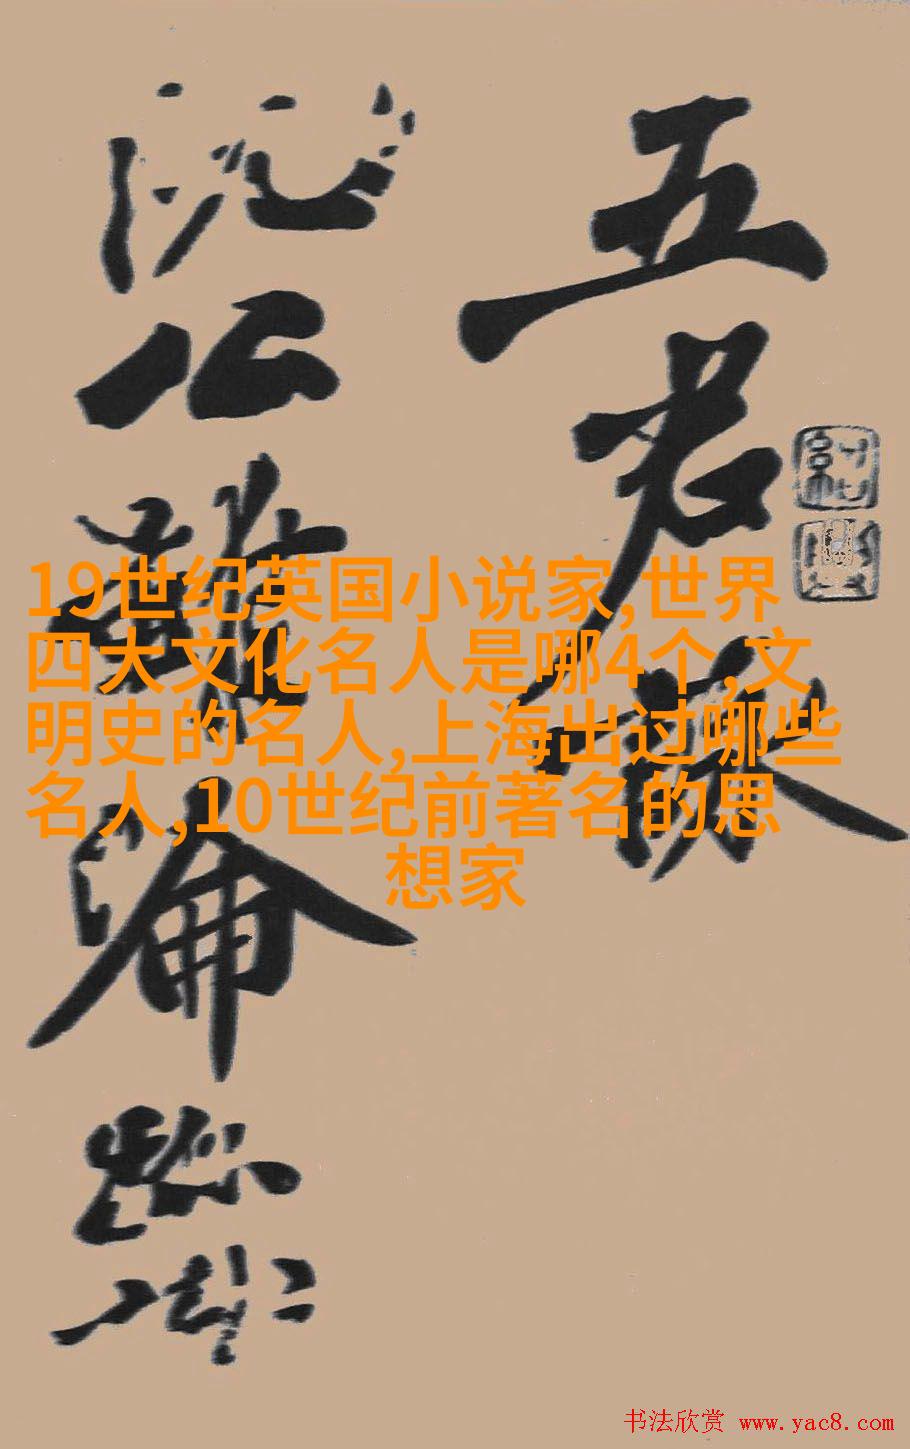 五君詠
阮公雖淪跡
19世纪英国小说家,世界
四大文化名人是哪4个,文
明史的名人,上海出过哪些
名人,10世纪前著名的思
想家
书法欣赏 www.yac8.com